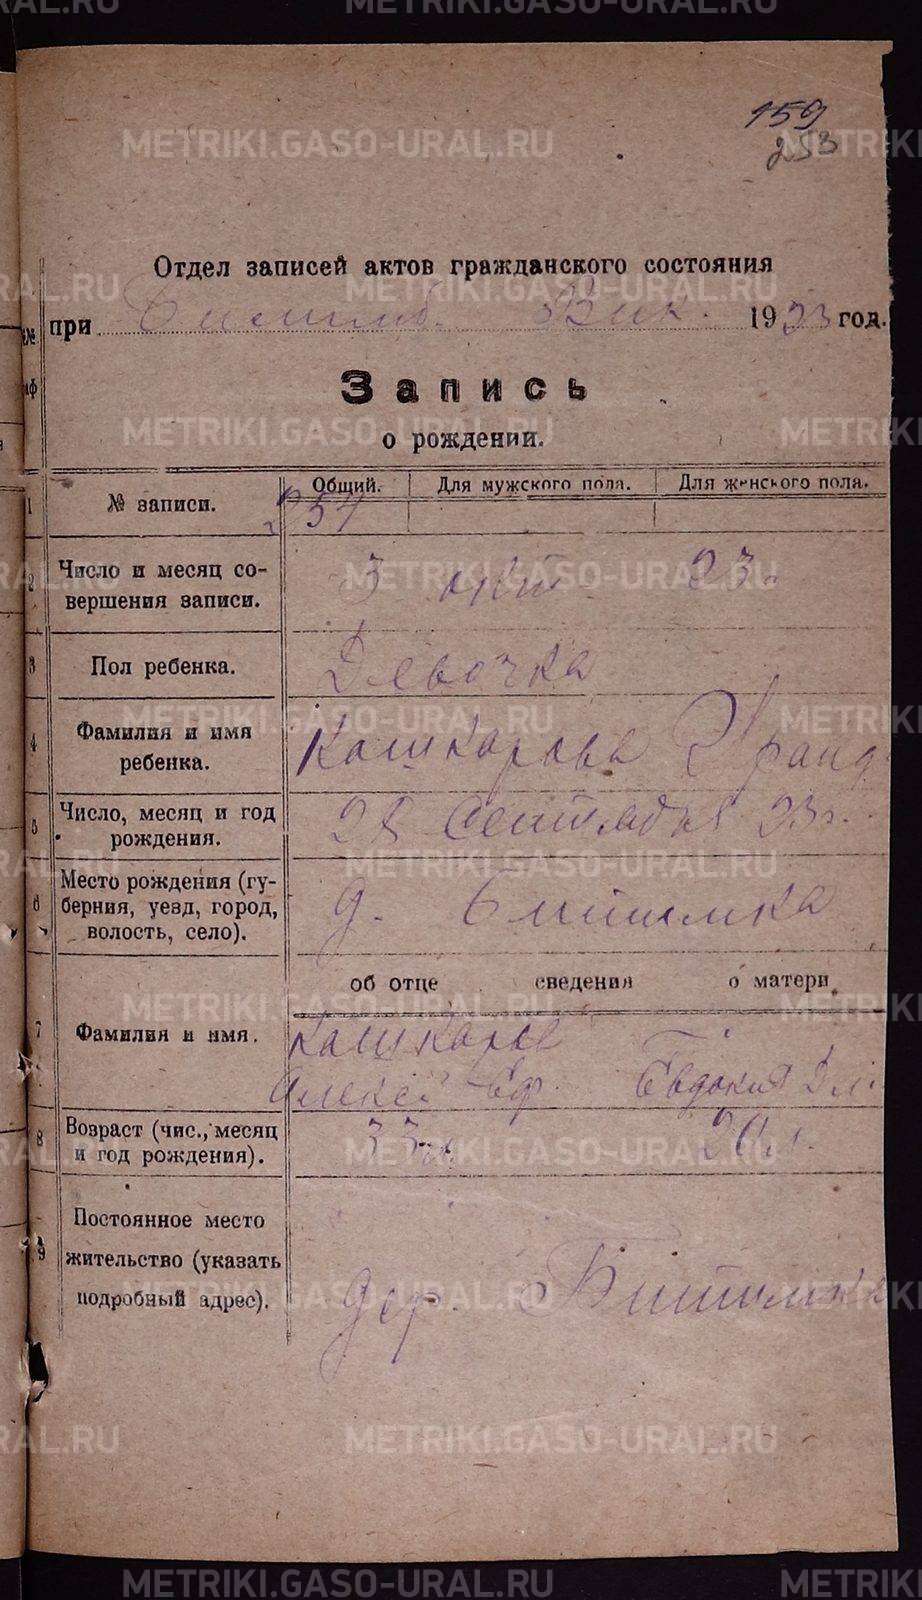 159
253
Отдел записей актов гражданского состояния
при Битимб. Вик. 1923 год.
Запись
о рождении.
Общий. Для мужского пола. Для женского пола.
1 № записи.
2 Число и месяц со-
вершения записи. 3 окт. 23 г.
3 Пол ребенка. Девочка
4 Фамилия и имя
ребенка. Кашкарова
5 Число, месяц и год
рождения. 28 Сентября 23г.
6 Место рождения (гу-
берния, уезд, город,
волость, село). д. Битимка
об отце сведения о матери
7 Фамилия и имя. Кашкаров
Алексей Еф. Евдокия
8 Возраст (чис., месяц
и год рождения). 33
9 Постоянное место
жительство (указать
подробный адрес). дер. Битимка
METRIKI.GASO-URAL.RU